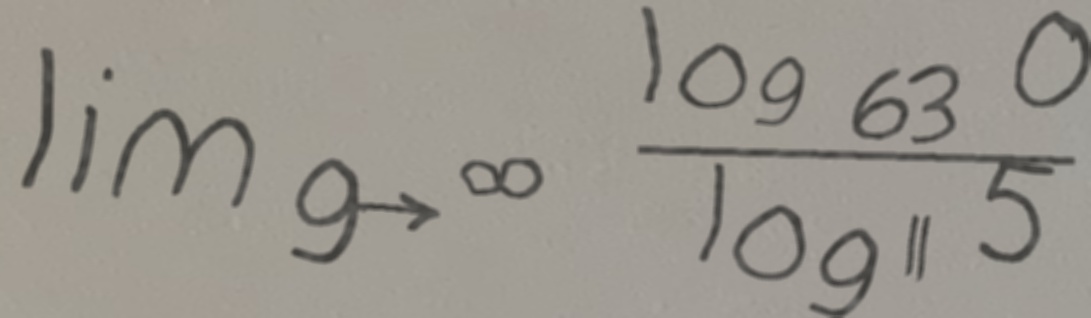 lim g→∞ log 63 0 / log 11 5